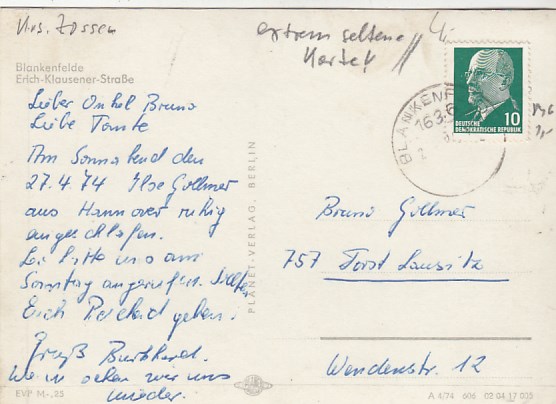 Krs. Zossen
extrem seltene
Karte!
Blankenfelde
Erich-Klausener-Straße
Lieber Onkel Bruno
Liebe Tante
Am Sonnabend den
27.4.74 Ilse Gollmer
aus Hannover ruhig
angeschlafen.
Sie hatte uns am
Sonntag angerufen. Sollte
Euch Bescheid geben.
Gruß Burkhard.
Wann sehen wir uns
wieder.
EVP M -,25
PLANET-VERLAG, BERLIN
BLANKENF
16.3.6
DEUTSCHE
DEMOKRATISCHE REPUBLIK
10
Bruno Gollmer
757 Forst Lausitz
Wendenstr. 12
A 4/74 606 02 04 17 005